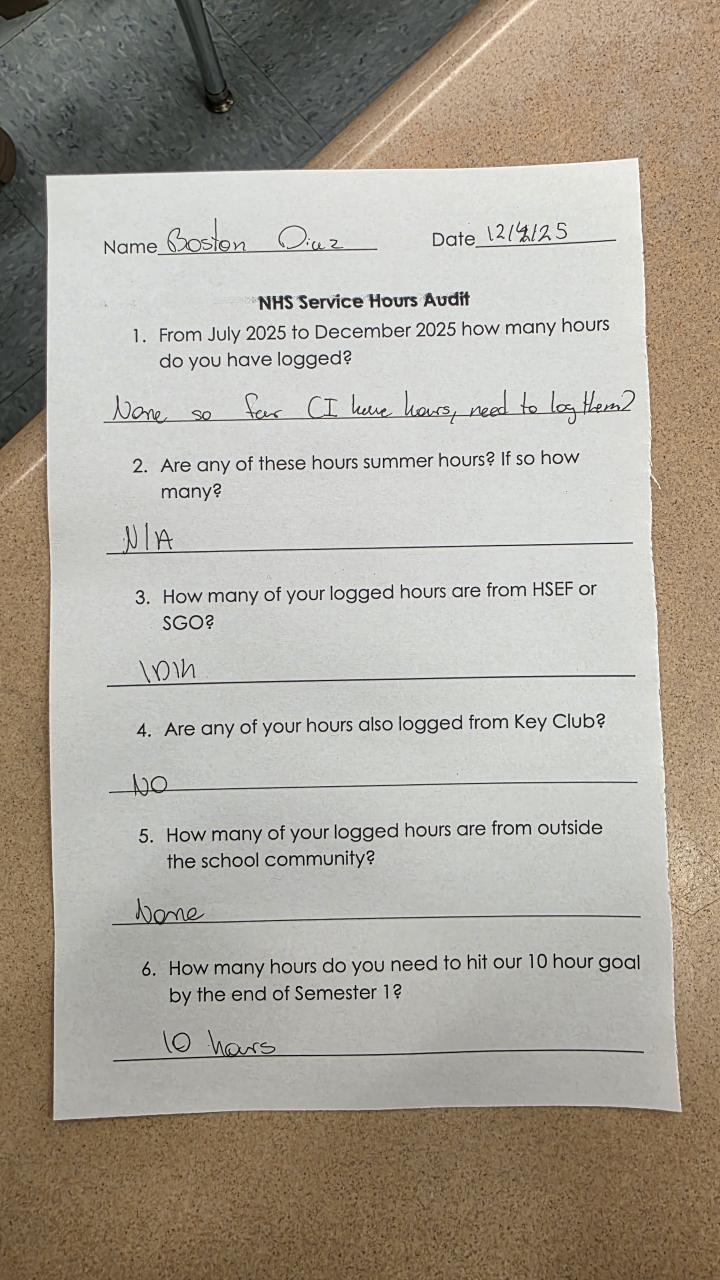 Name Boston Diaz Date 12/4/25
NHS Service Hours Audit
1. From July 2025 to December 2025 how many hours
do you have logged?
None so far (I have hours, need to log them)
2. Are any of these hours summer hours? If so how
many?
N/A
3. How many of your logged hours are from HSEF or
SGO?
4. Are any of your hours also logged from Key Club?
NO
5. How many of your logged hours are from outside
the school community?
None
6. How many hours do you need to hit our 10 hour goal
by the end of Semester 1?
10 hours